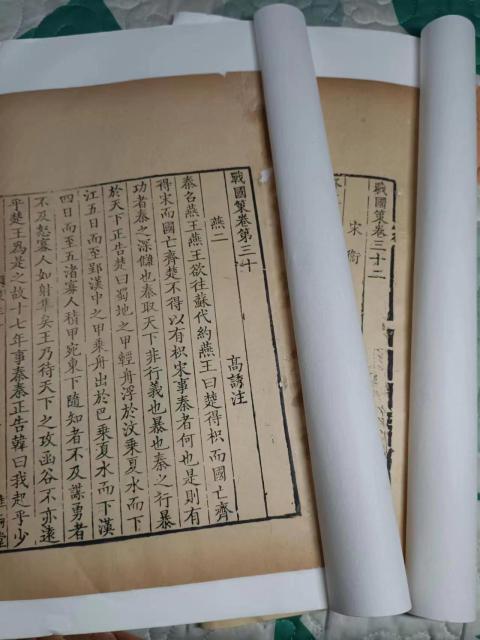 戰國策卷三十二
宋衛
戰國策卷第三十
高誘注
燕二
秦召燕王燕王欲往蘇代約燕王曰楚得枳而國亡齊
得宋而國亡齊楚不得以有枳宋事秦者何也是則有
功者秦之深讎也秦取天下非行義也暴也秦之行暴
於天下正告楚曰蜀地之甲輕舟浮於汶乘夏水而下
江五日而至郢漢中之甲乘舟出於巴乘夏水而下漢
四日而至五渚寡人積甲宛東下隨知者不及謀勇者
不及怒寡人如射隼矣王乃待天下之攻函谷不亦遠
乎楚王為是之故十七年事秦秦正告韓曰我起乎少